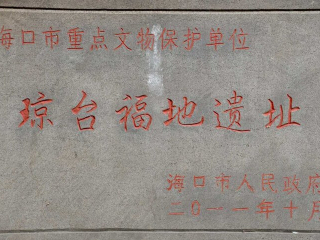 海口市重点文物保护单位
琼台福地遗址
海口市人民政府
二0一一年十月